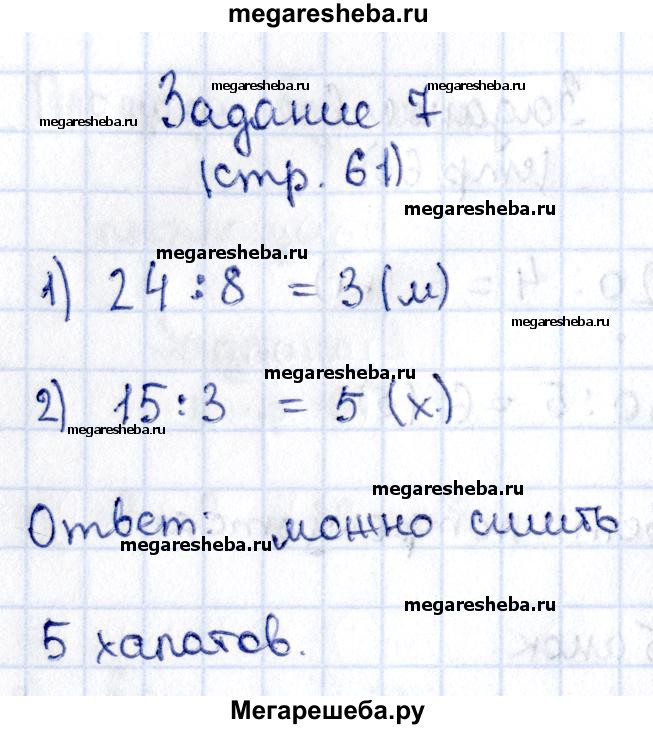 megaresheba.ru
Задание 7
megaresheba.ru
megaresheba.ru
megaresheba.ru
(стр. 61)
megaresheba.ru
megaresheba.ru
1) 24 : 8 = 3 (м)
megaresheba.ru
megaresheba.ru
2) 15 : 3 = 5 (х.)
megaresheba.ru
megaresheba.ru
Ответ: можно сшить
megaresheba.ru
megaresheba.ru
5 халатов.
Мегарешеба.ру